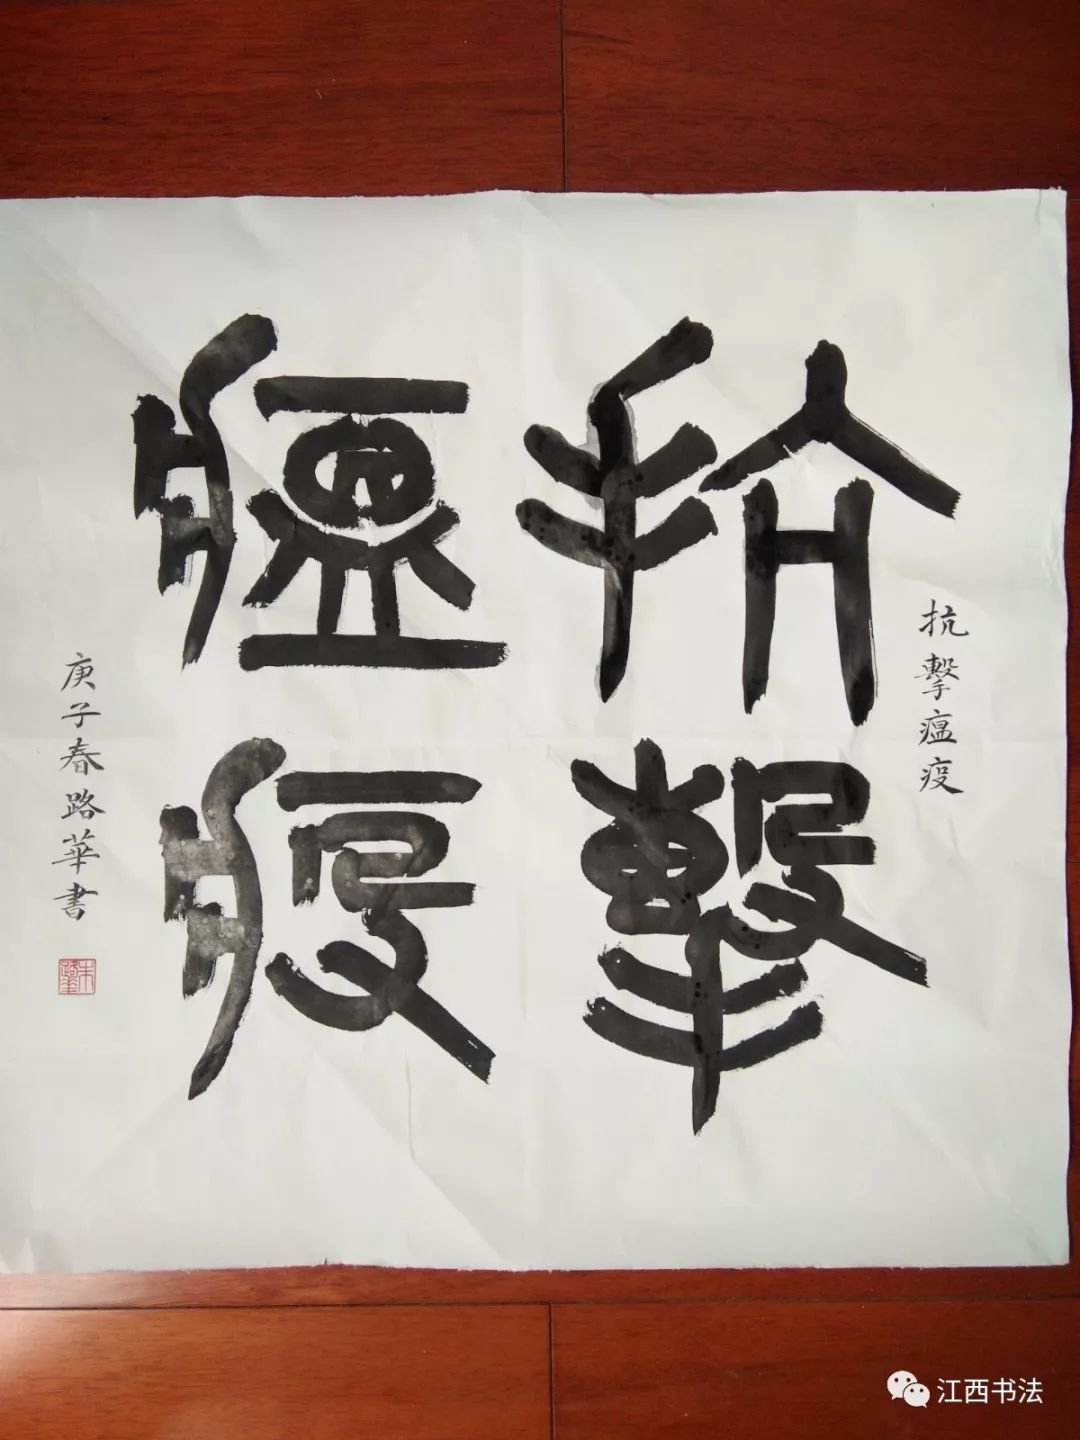 抗擊
瘟疫
抗擊瘟疫
庚子春路華書
朱路華
江西书法